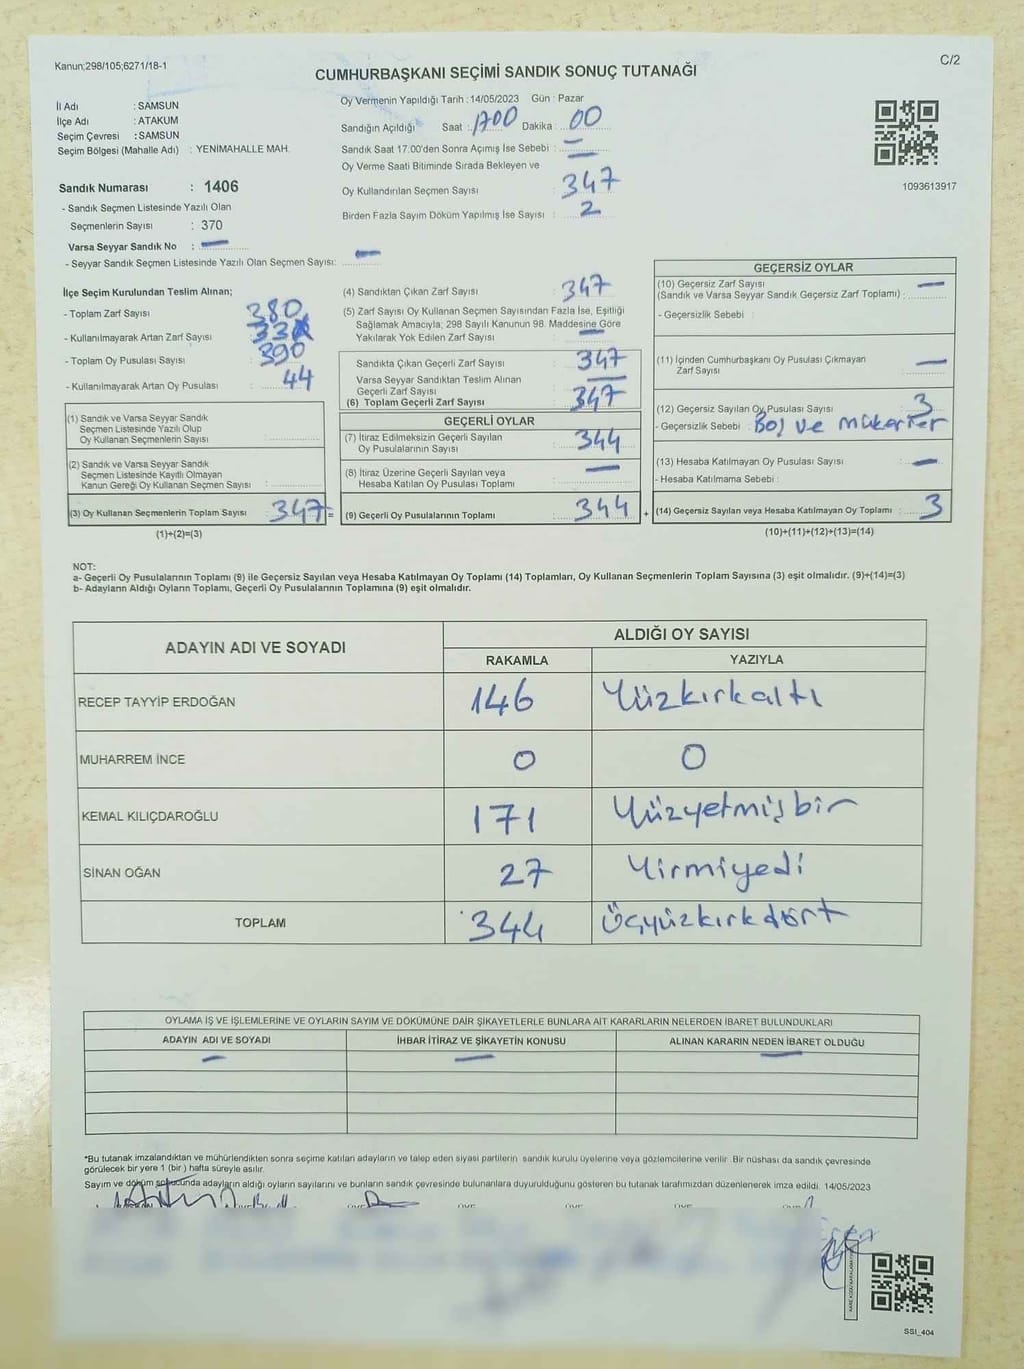 Kanun;298/105;6271/18-1
C/2
CUMHURBAŞKANI SEÇİMİ SANDIK SONUÇ TUTANAĞI
İl Adı : SAMSUN
İlçe Adı : ATAKUM
Seçim Çevresi : SAMSUN
Seçim Bölgesi (Mahalle Adı) : YENİMAHALLE MAH.
Sandık Numarası : 1406
- Sandık Seçmen Listesinde Yazılı Olan
Seçmenlerin Sayısı : 370
Varsa Seyyar Sandık No : —
- Seyyar Sandık Seçmen Listesinde Yazılı Olan Seçmen Sayısı: —
Oy Vermenin Yapıldığı Tarih : 14/05/2023 Gün : Pazar
Sandığın Açıldığı Saat : 1700 Dakika : 00
Sandık Saat 17.00'den Sonra Açımış İse Sebebi : —
Oy Verme Saati Bitiminde Sırada Bekleyen ve
Oy Kullandırılan Seçmen Sayısı : 347
Birden Fazla Sayım Döküm Yapılmış İse Sayısı : 2
1093613917
İlçe Seçim Kurulundan Teslim Alınan;
- Toplam Zarf Sayısı : 380
- Kullanılmayarak Artan Zarf Sayısı :
- Toplam Oy Pusulası Sayısı : 390
- Kullanılmayarak Artan Oy Pusulası : 44
(1) Sandık ve Varsa Seyyar Sandık
Seçmen Listesinde Yazılı Olup
Oy Kullanan Seçmenlerin Sayısı :
(2) Sandık ve Varsa Seyyar Sandık
Seçmen Listesinde Kayıtlı Olmayan
Kanun Gereği Oy Kullanan Seçmen Sayısı :
(3) Oy Kullanan Seçmenlerin Toplam Sayısı : 347 =
(1)+(2)=(3)
(4) Sandıktan Çıkan Zarf Sayısı : 347
(5) Zarf Sayısı Oy Kullanan Seçmen Sayısından Fazla İse, Eşitliği
Sağlamak Amacıyla; 298 Sayılı Kanunun 98. Maddesine Göre
Yakılarak Yok Edilen Zarf Sayısı : —
Sandıkta Çıkan Geçerli Zarf Sayısı : 347
Varsa Seyyar Sandıktan Teslim Alınan
Geçerli Zarf Sayısı : —
(6) Toplam Geçerli Zarf Sayısı : 347
GEÇERLİ OYLAR
(7) İtiraz Edilmeksizin Geçerli Sayılan
Oy Pusulalarının Sayısı : 344
(8) İtiraz Üzerine Geçerli Sayılan veya
Hesaba Katılan Oy Pusulası Toplamı : —
(9) Geçerli Oy Pusulalarının Toplamı : 344 +
GEÇERSİZ OYLAR
(10) Geçersiz Zarf Sayısı —
(Sandık ve Varsa Seyyar Sandık Geçersiz Zarf Toplamı) :
- Geçersizlik Sebebi :
(11) İçinden Cumhurbaşkanı Oy Pusulası Çıkmayan
Zarf Sayısı : —
(12) Geçersiz Sayılan Oy Pusulası Sayısı : 3
- Geçersizlik Sebebi : Boş ve mükerrer
(13) Hesaba Katılmayan Oy Pusulası Sayısı : —
- Hesaba Katılmama Sebebi :
(14) Geçersiz Sayılan veya Hesaba Katılmayan Oy Toplamı : 3
(10)+(11)+(12)+(13)=(14)
NOT:
a- Geçerli Oy Pusulalarının Toplamı (9) ile Geçersiz Sayılan veya Hesaba Katılmayan Oy Toplamı (14) Toplamları, Oy Kullanan Seçmenlerin Toplam Sayısına (3) eşit olmalıdır. (9)+(14)=(3)
b- Adayların Aldığı Oyların Toplamı, Geçerli Oy Pusulalarının Toplamına (9) eşit olmalıdır.
ADAYIN ADI VE SOYADI
ALDIĞI OY SAYISI
RAKAMLA YAZIYLA
RECEP TAYYİP ERDOĞAN 146 Yüzkırkaltı
MUHARREM İNCE 0 0
KEMAL KILIÇDAROĞLU 171 Yüzyetmişbir
SİNAN OĞAN 27 Yirmiyedi
TOPLAM 344 Üçyüzkırkdört
OYLAMA İŞ VE İŞLEMLERİNE VE OYLARIN SAYIM VE DÖKÜMÜNE DAİR ŞİKAYETLERLE BUNLARA AİT KARARLARIN NELERDEN İBARET BULUNDUKLARI
ADAYIN ADI VE SOYADI İHBAR İTİRAZ VE ŞİKAYETİN KONUSU ALINAN KARARIN NEDEN İBARET OLDUĞU
— — —
*Bu tutanak imzalandıktan ve mühürlendikten sonra seçime katılan adayların ve talep eden siyasi partilerin sandık kurulu üyelerine veya gözlemcilerine verilir. Bir nüshası da sandık çevresinde
görülecek bir yere 1 (bir) hafta süreyle asılır.
Sayım ve döküm sonucunda adayların aldığı oyların sayılarını ve bunların sandık çevresinde bulunanlara duyurulduğunu gösteren bu tutanak tarafımızdan düzenlenerek imza edildi. 14/05/2023
SSI_404